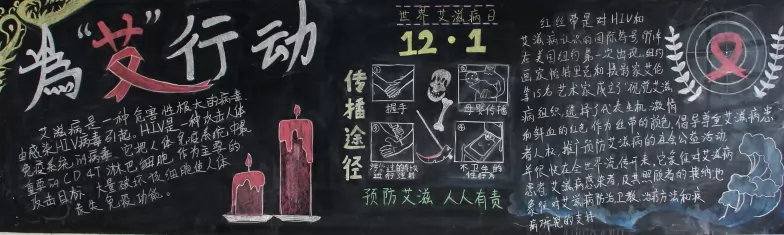 為"艾"行动
艾滋病是一种危害性极大的病毒
由感染HIV病毒引起。HIV是一种攻击人体
免疫系统的病毒。它把人体免疫系统中最
重要的CD4T淋巴细胞作为主要的
攻击目标，大量破坏该细胞使人体
丧失免疫功能。
世界艾滋病日
12·1
传播途径
握手
母婴传播
不卫生的
预防艾滋 人人有责
红丝带是对HIV和
艾滋病认识的国际符号，1991年
在美国纽约第一次出现。纽约
画家帕特里克和摄影家艾伦
等15名艺术家成立"视觉艾滋
病组织，选择了代表生机、激情
和鲜血的红色作为丝带的颜色，倡导尊重艾滋病患
者人权、推广预防艾滋病的公益活动，
并很快在全世界流传开来。它象征对艾滋病
患者、艾滋病感染者及其照顾者的接纳也
象征对艾滋病防治卫教、治疗方法和疾
病研究的支持